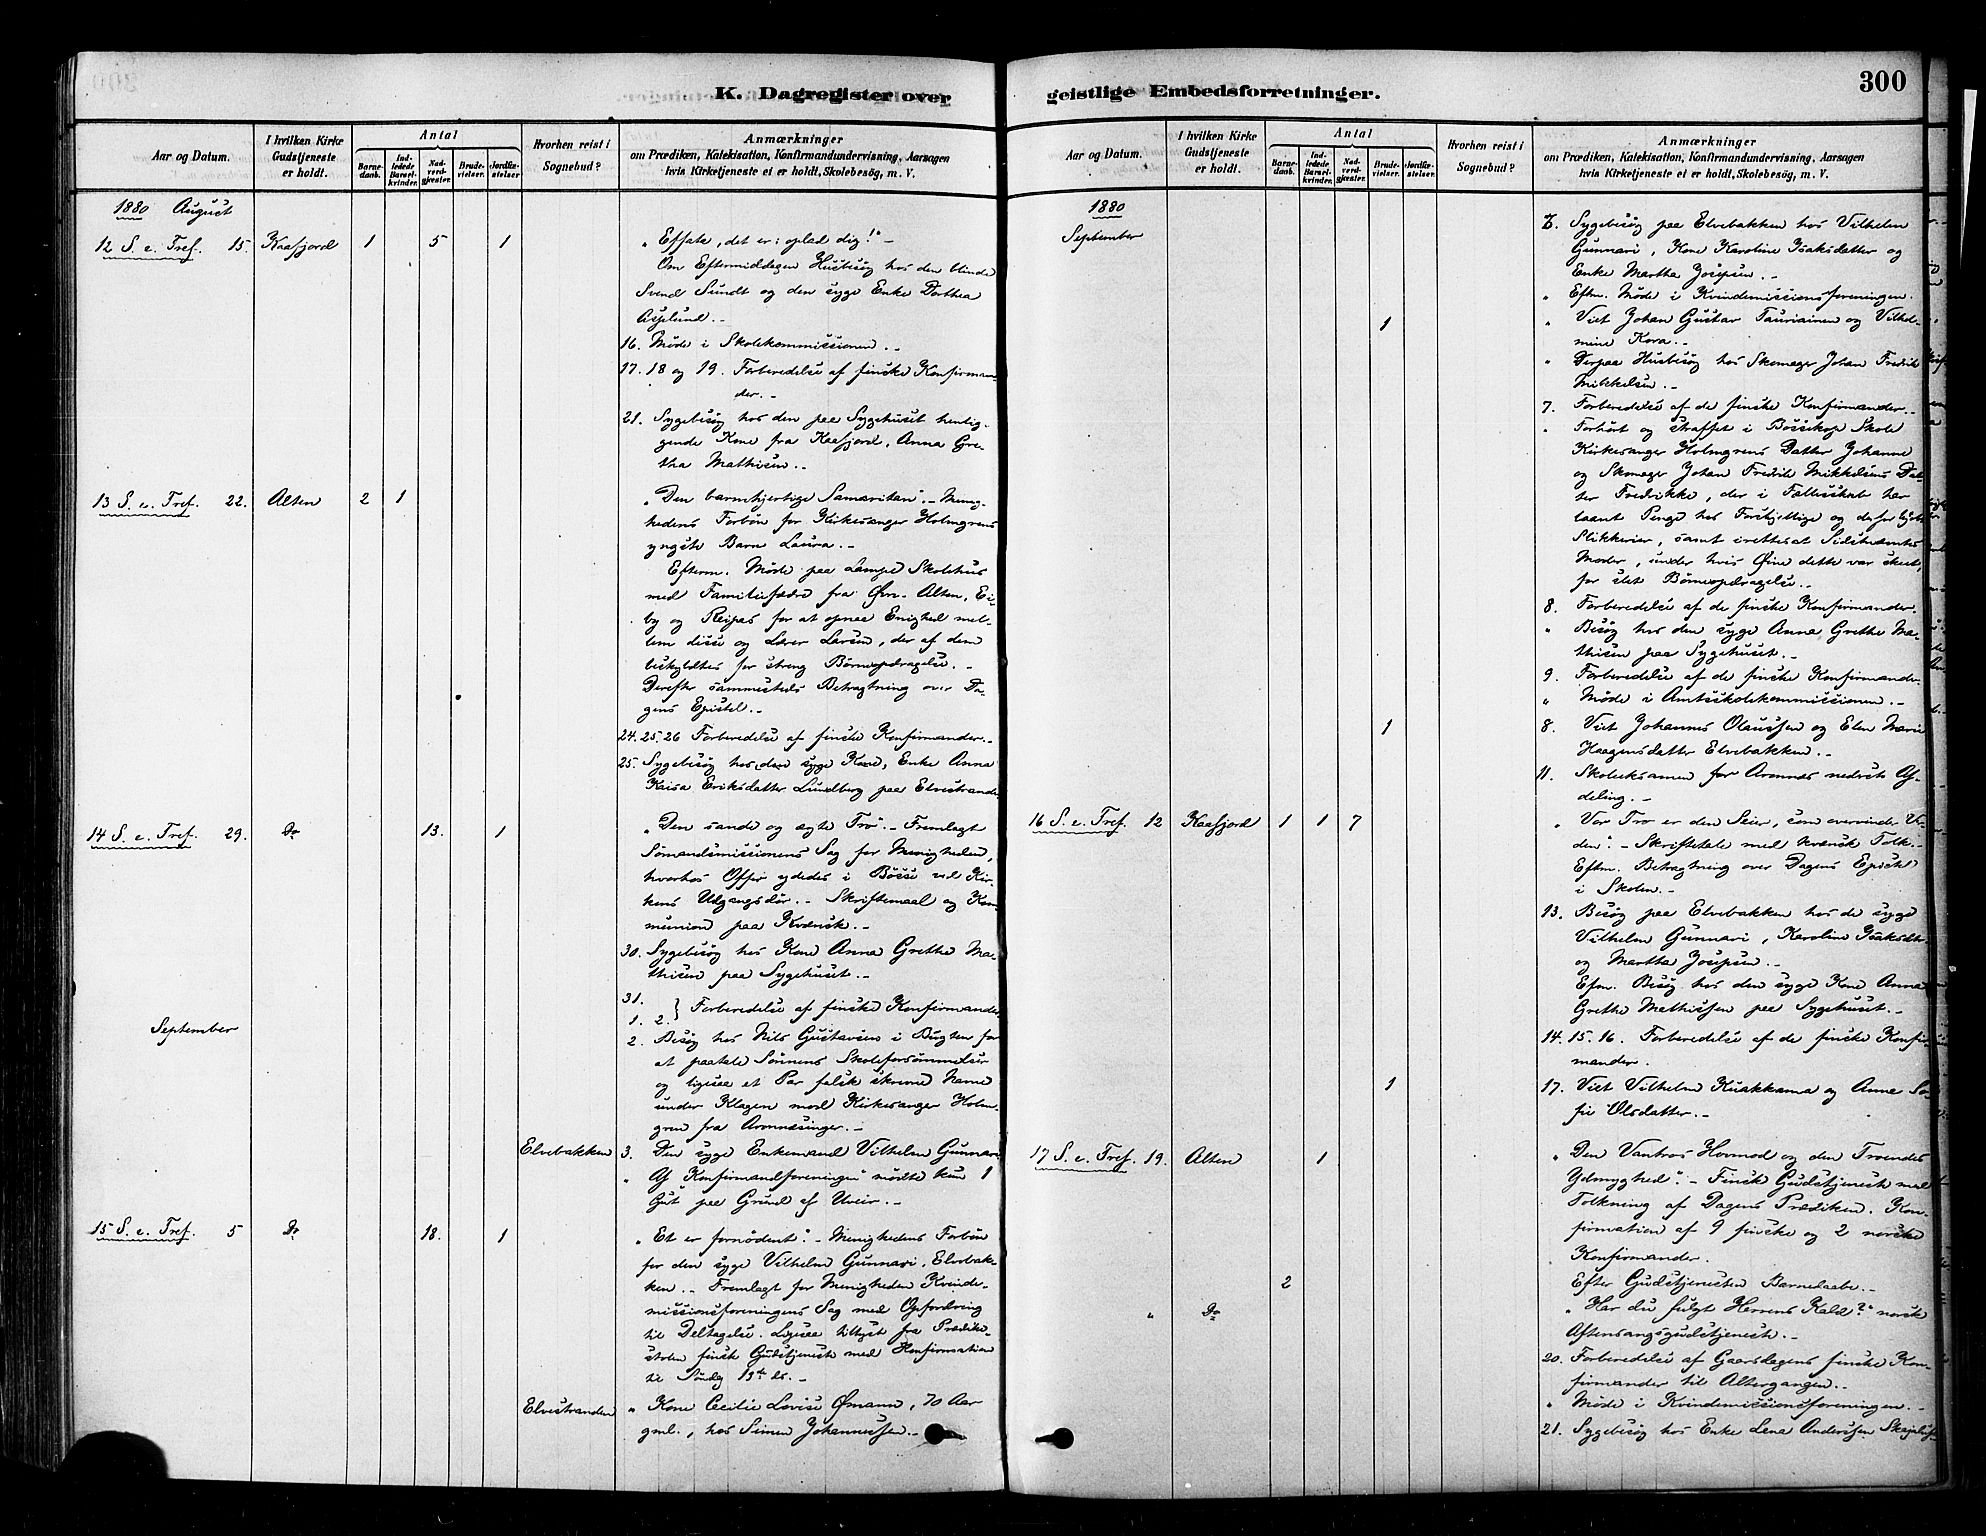 300
K. Dagregister over
geistlige Embedsforretninger.
Aar og Datum.
I hvilken Kirke Gudstjeneste er holdt.
Antal
Barnedaab.
Indledede Barselkvinder.
Nadverdgjester.
Brudevielser.
Jordfæstelser.
Hvorhen reist i Sognebud?
Anmærkninger
om Prædiken, Katekisation, Konfirmandundervisning, Aarsagen
hvis Kirketjeneste ei er holdt, Skolebesøg, m. V.
1880 August
12 S. e. Tref. 15. Kaafjord 1 5 1 „Effata, det er: oplad dig!" –
Om Eftermiddagen Husbesøg hos den blinde
Svend Sundt og den syge Enke Dorthea
Asplund. –
16. Møde i Skolekommissionen. –
17. 18 og 19. Forberedelse af finske Konfirman-
der. –
21. Sygebesøg hos den paa Sygehuset henlig-
gende Kone fra Kaafjord, Anna Gre-
tha Mathisen. –
13 S. e. Tref. 22. Alten 2 1 „Den barmhjertige Samaritan". – Menig-
hedens Forbøn for Kirkesanger Holmgrens
yngste Barn Laura. –
Efterm. Møde paa Lampe Skolehus
med Familiefædre fra Øvre-Alten, Ei-
by og Reipas for at opnaa Enighed mel-
lem disse og Lærer Larsen, der af dem
beskyldtes for streng Børneopdragelse. –
Derefter sammesteds Betragtning over Da-
gens Epistel. –
24. 25. 26 Forberedelse af finske Konfirmander. –
25. Sygebesøg hos den syge Kone, Enke Anna
Kaisa Eriksdatter Lundberg paa Elvestranden
14 S. e. Tref. 29. Do 13. 1 „Den sande og ægte Tro". – Fremlagt
Sømandsmissionens Sag for Menigheden,
hvorhos Offer ydedes i Bøsse ved Kir-
kens Udgangsdør. – Skriftemaal og Kom-
munion paa Kvænsk. –
30. Sygebesøg hos Kone Anna Grethe Ma-
thisen paa Sygehuset. –
31.
1. 2. } Forberedelse af finske Konfirmander
September
2. Besøg hos Nils Gustavsens i Bugten for
at paatale Sønnens Skoleforsømmelser
og ligesaa et Par falsk skrevne Navne
under Klagen mod Kirkesanger Holm-
gren fra Aronnæsinger. –
Elvebakken 3. Den syge Enkemand Vilhelm Gunnari.
„ Af „Konfirmandforeningen" mødte kun 1
Gut paa Grund af Uveir. –
15 S. e. Tref. 5 Do 18. 1 „Et er fornødent". – Menighedens Forbøn
for den syge Vilhelm Gunnari, Elvebak-
ken. – Fremlagt for Menigheden Kvinde-
missionsforeningens Sag med Opfordring
til Deltagelse. Ligesaa tillyst fra Prædike-
stolen finsk Gudstjeneste med Konfirmation
til Søndag 19de ds. –
Elvestranden „ Kone Cecilie Lovise Ømann, 70 Aar
gml., hos Simon Johannessen. –
Aar og Datum.
I hvilken Kirke Gudstjeneste er holdt.
Antal
Barnedaab.
Indledede Barselkvinder.
Nadverdgjester.
Brudevielser.
Jordfæstelser.
Hvorhen reist i Sognebud?
Anmærkninger
om Prædiken, Katekisation, Konfirmandundervisning, Aarsagen
hvis Kirketjeneste ei er holdt, Skolebesøg, m. V.
1880
September
Sygebesøg paa Elvebakken hos Vilhelm
Gunnari, Kone Karoline Isaksdatter og
Enke Martha Josepsen. –
„ Eftm. Møde i Kvindemissionsforeningen.
1 „ Viet Johan Gustav Tauriainen og Vilhel-
mine Kora. –
„ Derpaa Husbesøg hos Skomager Johan Fredrik
Mikkelsen. –
7. Forberedelse af de finske Konfirmander. –
„ Forhørt og straffet i Bossekop Skole
Kirkesanger Holmgrens Datter Johanne
og Skomager Johan Fredrik Mikkelsens Dat-
ter Fredrikke, der i Fællesskab har
laant Penge hos Forskjellige og derfor kjøbt
Slikkerier, samt irettesat Sidstnævntes
Moder, under hvis Øine dette var skeet,
for slet Børneopdragelse. –
8. Forberedelse af de finske Konfirmander.
„ Besøg hos den syge Anna Grethe Ma-
thisen paa Sygehuset. –
9. Forberedelse af de finske Konfirmander.
„ Møde i Amtsskolekommissionen. –
1 8. Viet Johannes Olaussen og Elen Marie
Haagensdatter Elvebakken. –
11. Skoleeksamen for Aronnæs nederste Af-
deling. –
16 S. e. Tref. 12 Kaafjord 1 1 7 „ Vor Tro er den Seier, som overvinder Ver-
den". – Skriftetale med kvænsk Tolk. –
Eftm. Betragtning over Dagens Epistel
i Skolen. –
13. Besøg paa Elvebakken hos de syge
Vilhelm Gunnari, Karoline Isaksdtr.
og Martha Josepsen. –
Efm. Besøg hos den syge Kone Anna
Grethe Mathissen paa Sygehuset. –
14. 15. 16. Forberedelse af de finske Konfir-
mander.
1 17. Viet Vilhelm Kuakkama og Anne So-
fie Olsdatter. –
17 S. e. Tref. 19. Alten 1 „ Den Vantros Hovmod og den Troendes
Ydmyghed". – Finsk Gudstjeneste med
Tolkning af Dagens Prædiken. Kon-
firmation af 9 finske og 2 norske
Konfirmander.
2 Efter Gudstjenesten Barnedaab. –
„ Do „Har du fulgt Herrens Kald?" norsk
Aftensangsgudstjeneste. –
20. Forberedelse af Gaarsdagens finske Kon-
firmander til Altergangen. –
„ Møde i Kvindemissionsforeningen. –
21. Sygebesøg hos Enke Lena Andersen